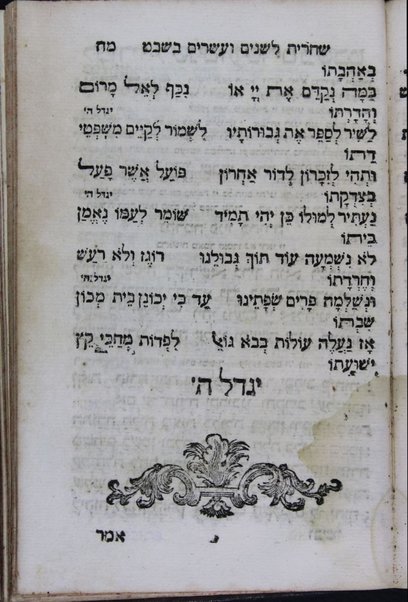 שחרית לשנים ועשרים בשבט מח
בְּאַהֲבָתוֹ
בַּמָּה נְקַדֵּם אֶת יְיָ אוֹ נִכַּף לְאֵל מָרוֹם
יגדל ה'
וְהֶדְרָתוֹ
לָשִׁיר לְסַפֵּר אֶת גְּבוּרוֹתָיו לִשְׁמוֹר לְקַיֵּים מִשְׁפְּטֵי
דָּתוֹ
וּתְהִי לְזִכָּרוֹן לְדוֹר אַחֲרוֹן פּוֹעַל אֲשֶׁר פָּעַל
יגדל ה'
בְּצִדְקָתוֹ
נַעְתִּיר לְמוּלוֹ כֵּן יְהִי תָמִיד שׁוֹמֵר לְעַמּוֹ נֶאֱמַן
בְּרִיתוֹ
לֹא נִשְׁמְעָה עוֹד תּוֹךְ גְּבוּלֵנוּ רוֹגֶז וְלֹא רַעַשׁ
יגדל ה'
וְחֶרְדָּתוֹ
וּנְשַׁלְּמָה פָּרִים שְׂפָתֵינוּ עַד כִּי יְכוֹנֵן בֵּית מְכוֹן
שִׁבְתּוֹ
אָז נַעֲלֶה עוֹלוֹת בְּבֹא גוֹאֵל לִפְדּוֹת מְחַכֵּי קֵץ
יְשׁוּעָתוֹ
יגדל ה'
אמר